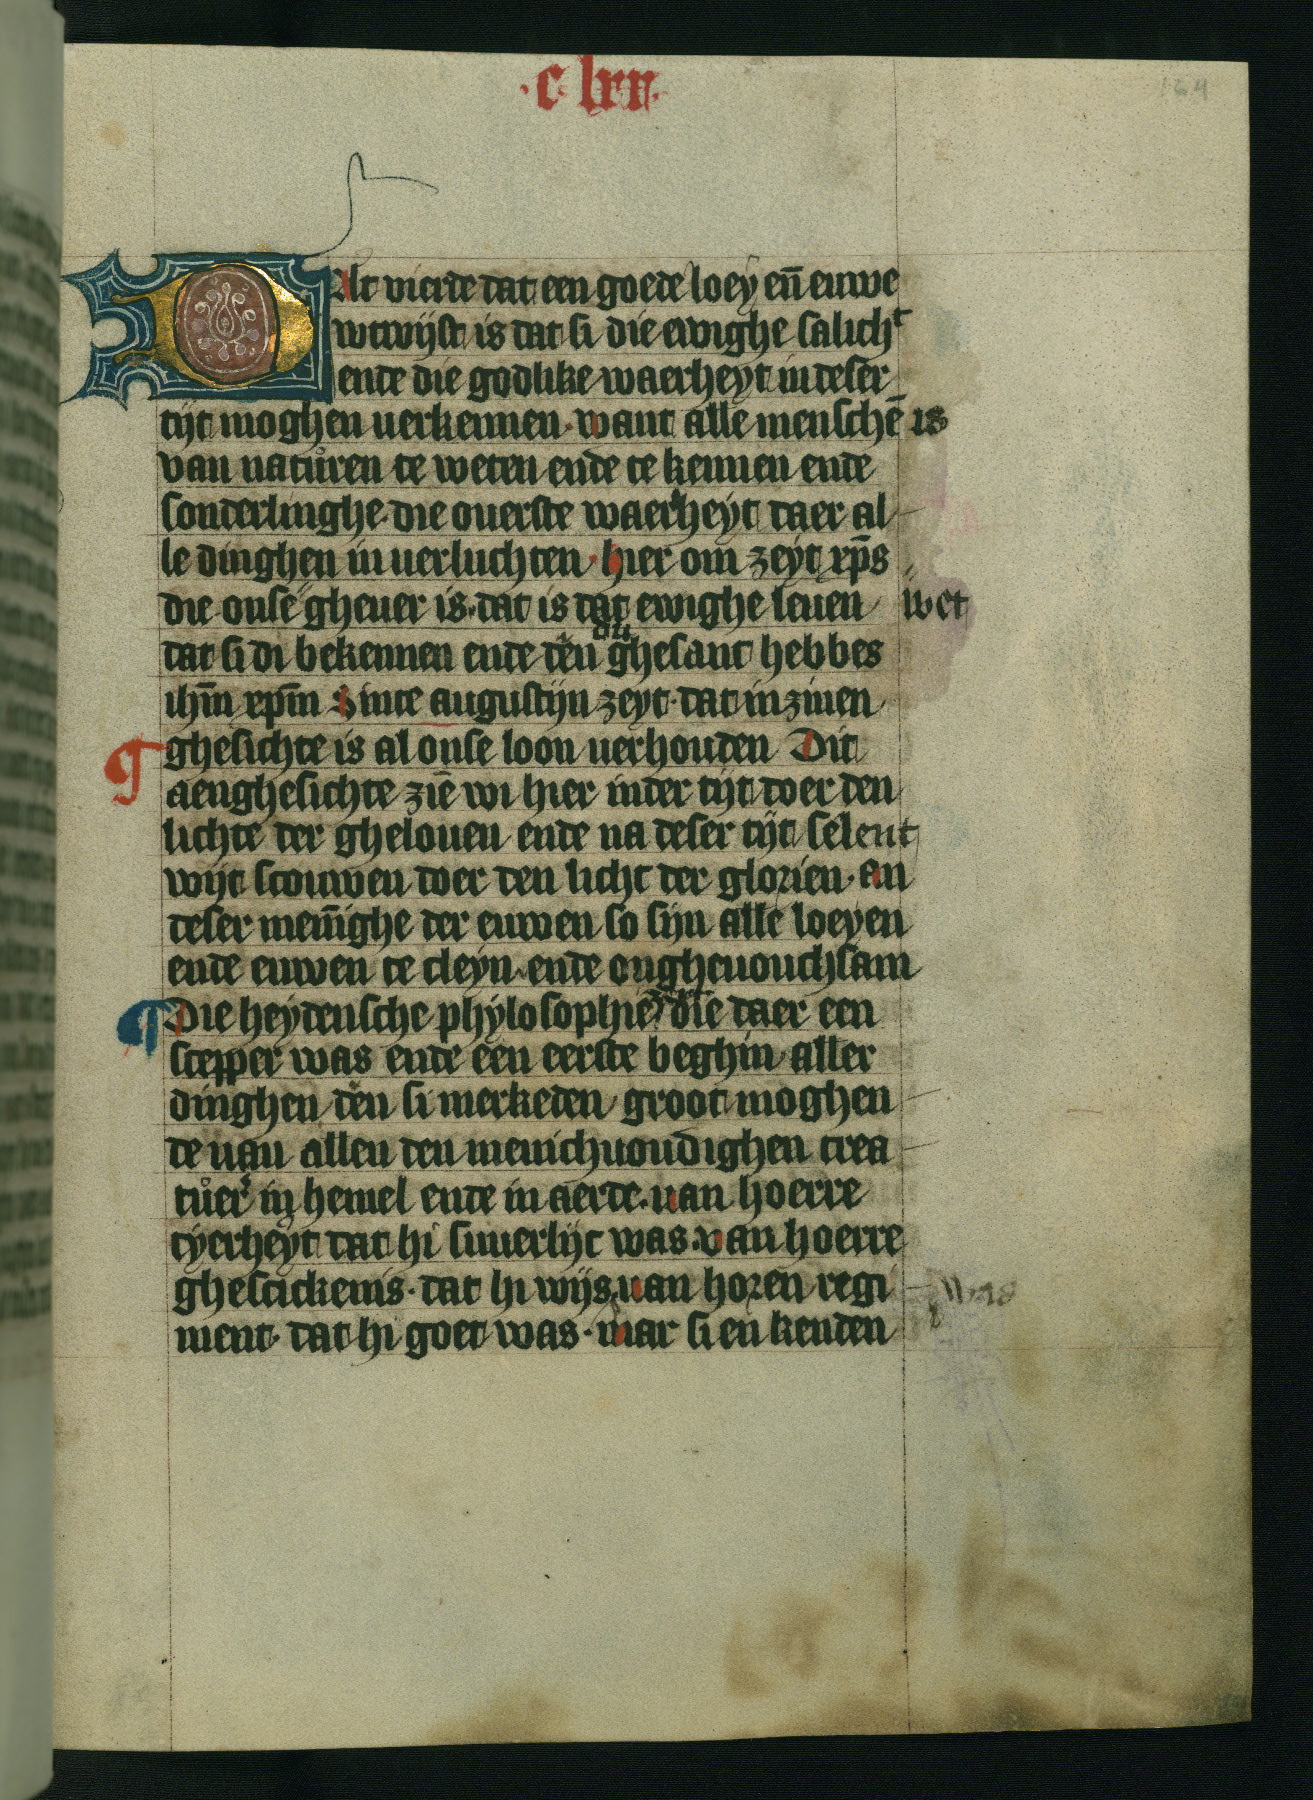 ·c lxx·
164
DAt vierde dat een goede loey en̄ euwe
wtwijst is dat si die ewighe salichᵗ
ente die godlike waerheyt in deser
tijt moghen uerkennen· want alle menschē is
van natůren te weten ende te kennen ende
sonderlinghe die ouerste waerheyt daer al
le dinghen in uerluchten· hier om zeyt xp̄s
die onse gheuer is· dat is dat ewighe leuen
wet
dat si di bekennen ende den du ghesant hebbes
ihm̄ xpm̄ Sinte augustijn zeyt· dat in zinen
¶ ghesichte is al onse loon uerhouden Dit
aenghesichte ziē wi hier inder tijt doer den
lichte der ghelouen ende na deser tijt selent
wijt scouwen doer den licht der glorien· an
deser men̄ighe der euwen so sijn alle loeyen
ende euwen te cleyn ende onghenouchsam
¶ Die heydensche phylosophiē die daer een
scepper was ende een eerste beghin aller
dinghen den si merkeden groot moghen
de uan allen den menichuoudighen crea
tůer in hemel ende in aerde· uan hoerre
cyerheyt dat hi suuerlijc was· van hoerre
ghescickenis· dat hi wijs uan horen regi
ment· dat hi goet was· mar si en kenden
was